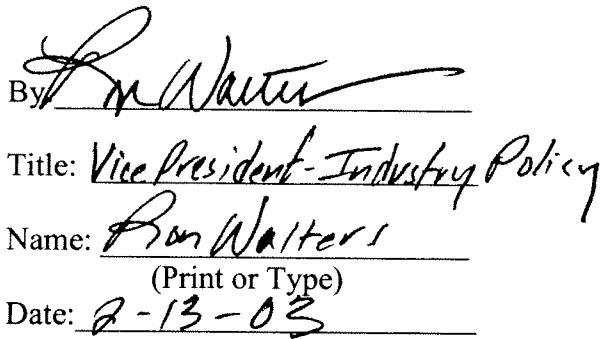 By Ron Walters
Title: Vice President-Industry Policy
Name: Ron Walters
(Print or Type)
Date: 2-13-03